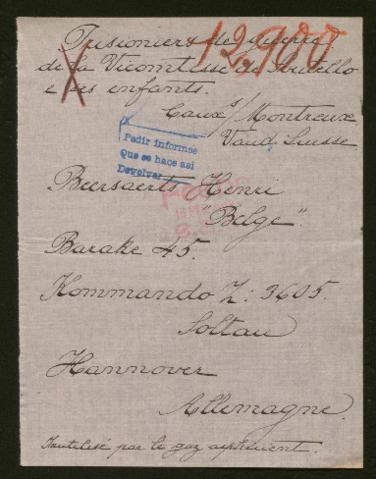 Prisioniers de guerre
12.900
de la Vicomtesse de
e ses enfants.
Caux s/Montreux
Vaud. Suisse
Pedir informes
Que se hace asi
Devolver
Beersaerts Henri
"Belge".
Barake 45.
Kommando Z: 3605.
Soltau
Hannover
Allemagne.
par le gaz